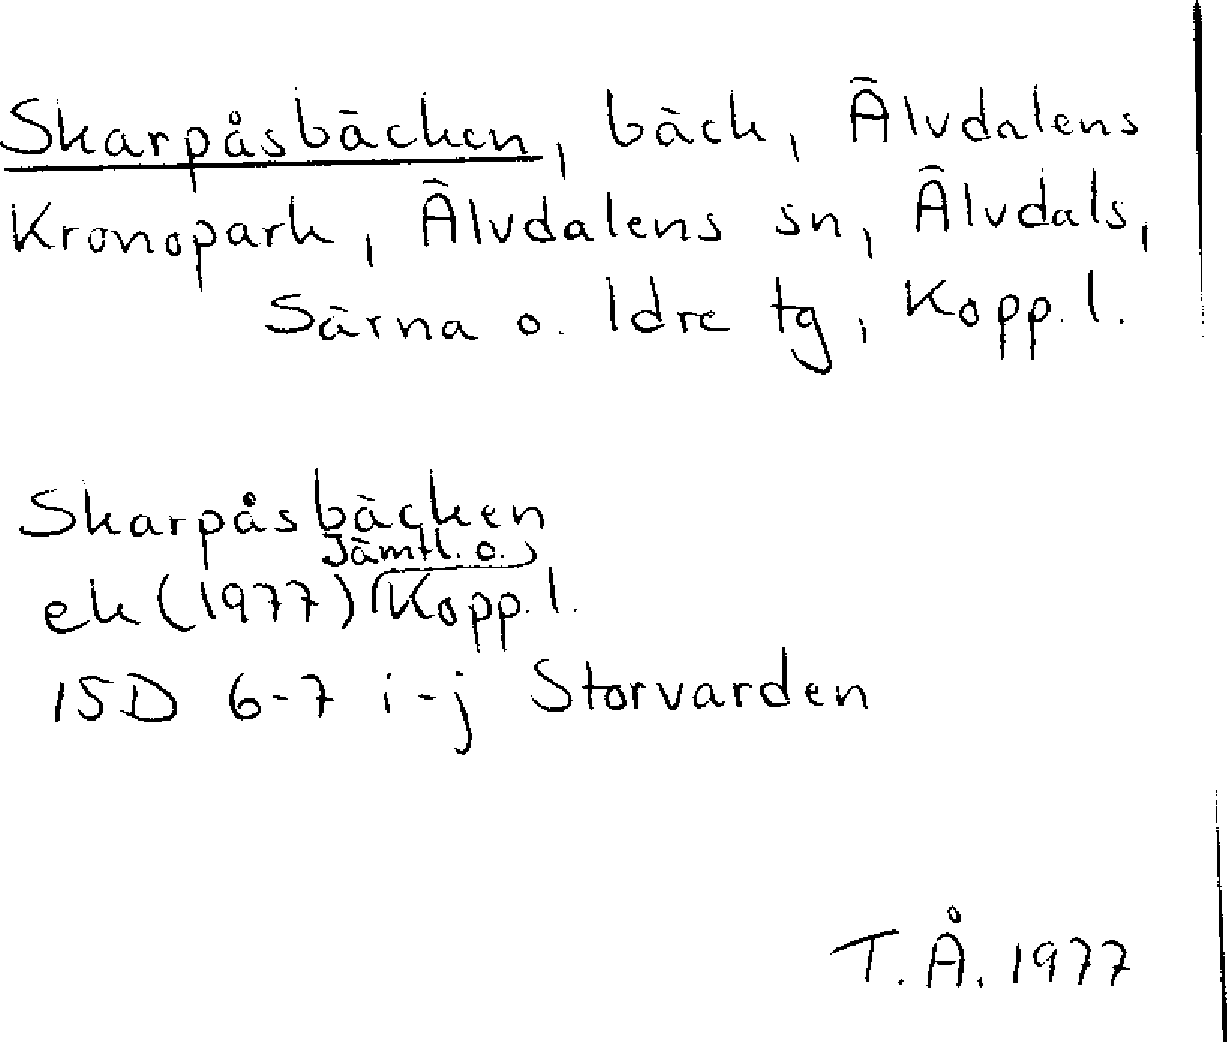 Skarpåsbäcken, bäck, Älvdalens
Kronopark, Älvdalens sn, Älvdals,
Särna o. Idre tg, Kopp. l.
Skarpåsbäcken
Jämtl. o.
ek (1977) Kopp. l.
15D 6-7 i-j Storvarden
T. Å. 1977